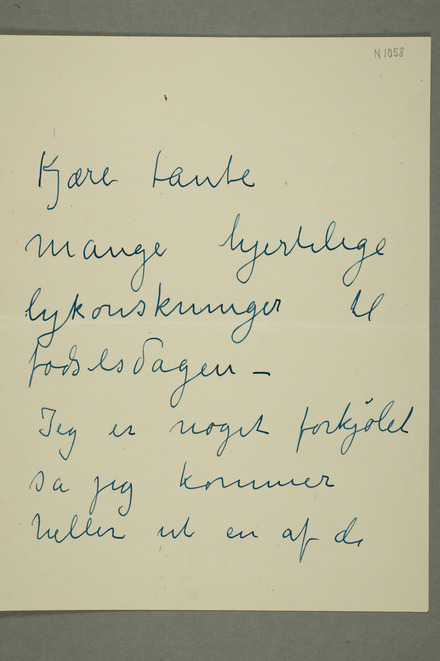 N 1058
Kjære tante
mange hjertelige
lykonskninger til
fodselsdagen –
Jeg er noget forkjølet
sa jeg kommer
heller ut en af de